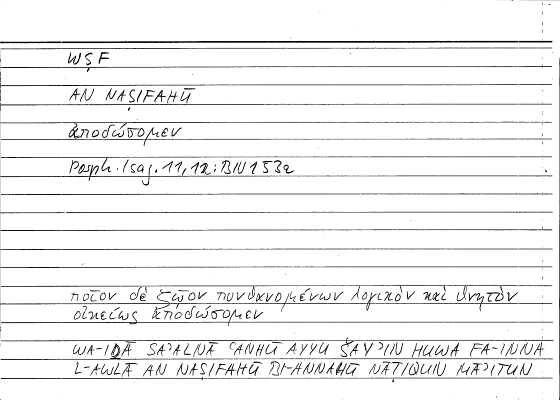 WṢF
AN NAṢIFAHŪ
ἀποδώσομεν
Porph. Isag. 11,12: BN 153a
ποῖον δὲ ζῷον πυνθανομένων λογικὸν καὶ θνητὸν
οἰκείως ἀποδώσομεν
WA-IḎĀ SAʾALNĀ ʿANHŪ AYYU ŠAYʾIN HUWA FA-INNA
L-AWLĀ AN NAṢIFAHŪ BI-ANNAHŪ NĀṬIQUN MĀʾITUN